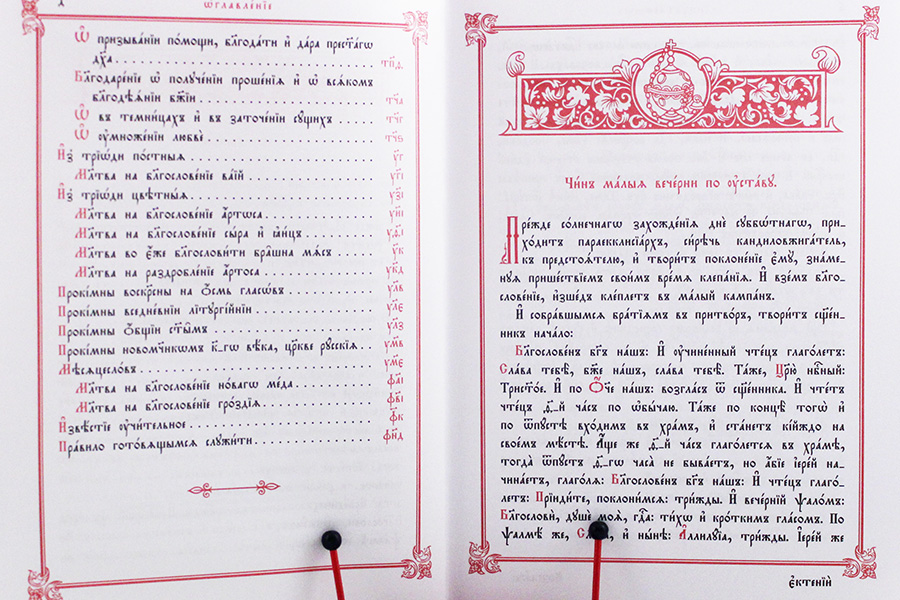 Ѡ҆главле́нїе
Ѡ҆ призыва́нїи по́мощи, бл҃года́ти и҆ да́ра прест҃а́гѡ
дх҃а
Благодаре́нїе ѡ҆ получе́нїи проше́нїѧ и҆ ѡ҆ всѧ́комъ
бл҃годѣѧ́нїи бж҃їи
Ѡ҆ въ темни́цахъ и҆ въ заточе́нїи сꙋ́щихъ
Ѡ҆ ᲂу҆множе́нїи любвѐ
И҆з̾ трїѡ́ди по́стныѧ
Мл҃тва на бл҃гослове́нїе ва́їй
И҆з̾ трїѡ́ди цвѣ́тныѧ
Мл҃тва на бл҃гослове́нїе а҆́ртоса
Мл҃тва на бл҃гослове́нїе сы́ра и҆ ꙗ҆и́цъ
Мл҃тва во є҆́же бл҃гослови́ти бра̑шна мѧ́съ
Мл҃тва на раздробле́нїе а҆́ртоса
Прокі́мны воскрⷭ҇ны на ѻ҆́смь гласѡ́въ
Прокі́мны вседне́внїи лїтꙋргі́йнїи
Прокі́мны ѻ҆́бщїи ст҃ы̑мъ
Прокі́мны новомч҃нкѡмъ к҃-гѡ вѣ́ка, цр҃кве рꙋ́сскїѧ
Мѣсѧцесло́въ
Мл҃тва на бл҃гослове́нїе но́вагѡ ме́да
Мл҃тва на бл҃гослове́нїе гро́здїѧ
И҆звѣ́стїе ᲂу҆чи́тельное
Пра́вило гото́вѧщымсѧ слꙋжи́ти
Чи́нъ ма́лыѧ вече́рни по ᲂу҆ста́вꙋ.
Пре́жде со́лнечнагѡ захожде́нїѧ днѐ сꙋббѡ́тнагѡ, при-
хо́дитъ параеkклисїа́рхъ, си́рѣчь кандиловжига́тель,
къ предстоѧ́телю, и҆ твори́тъ поклоне́нїе є҆мꙋ̀, зна́ме-
нꙋѧ прише́ствїемъ свои́мъ вре́мѧ клепа́нїѧ. И҆ взе́мъ бл҃го-
слове́нїе, и҆зше́дъ кле́плетъ въ ма́лый кампа́нъ.
И҆ собра́вшымсѧ бра́тїѧмъ въ притво́ръ, твори́тъ сщ҃е́н-
никъ нача́ло:
Благослове́нъ бг҃ъ на́шъ: И҆ ᲂу҆чине́нный чте́цъ глаго́летъ:
Сла́ва тебѣ̀, бж҃е на́шъ, сла́ва тебѣ̀. Та́же, Цр҃ю̀ нбⷭ҇ный:
Трист҃о́е. И҆ по Ѻ҆́ч҃е на́шъ: возгла́съ ѿ сщ҃е́нника. И҆ чте́тъ
чте́цъ ѳ҃-й ча́съ по ѡ҆бы́чаю. Та́же по концѣ̀ тогѡ̀ и҆
по ѿпꙋ́стѣ вхо́димъ въ хра́мъ, и҆ ста́нетъ кі́йждо на
свое́мъ мѣ́стѣ. А҆́ще же ѳ҃-й ча́съ глаго́летсѧ въ хра́мѣ,
тогда̀ ѿпꙋ́стъ ѳ҃-гѡ часа̀ не быва́етъ, но а҆́бїе і҆ере́й на-
чина́етъ, глаго́лѧ: Благослове́нъ бг҃ъ на́шъ: И҆ чте́цъ глаго́-
летъ: Прїиди́те, поклони́мсѧ: три́жды. И҆ вече́рнїй ѱало́мъ:
Благословѝ, дꙋшѐ моѧ̀, гдⷭ҇а: ти́хѡ и҆ кро́ткимъ гла́сомъ. По
ѱалмѣ́ же, Сла́ва, и҆ ны́нѣ: А҆ллилꙋ́їа, три́жды. І҆ере́й же
є҆ктенїи̑